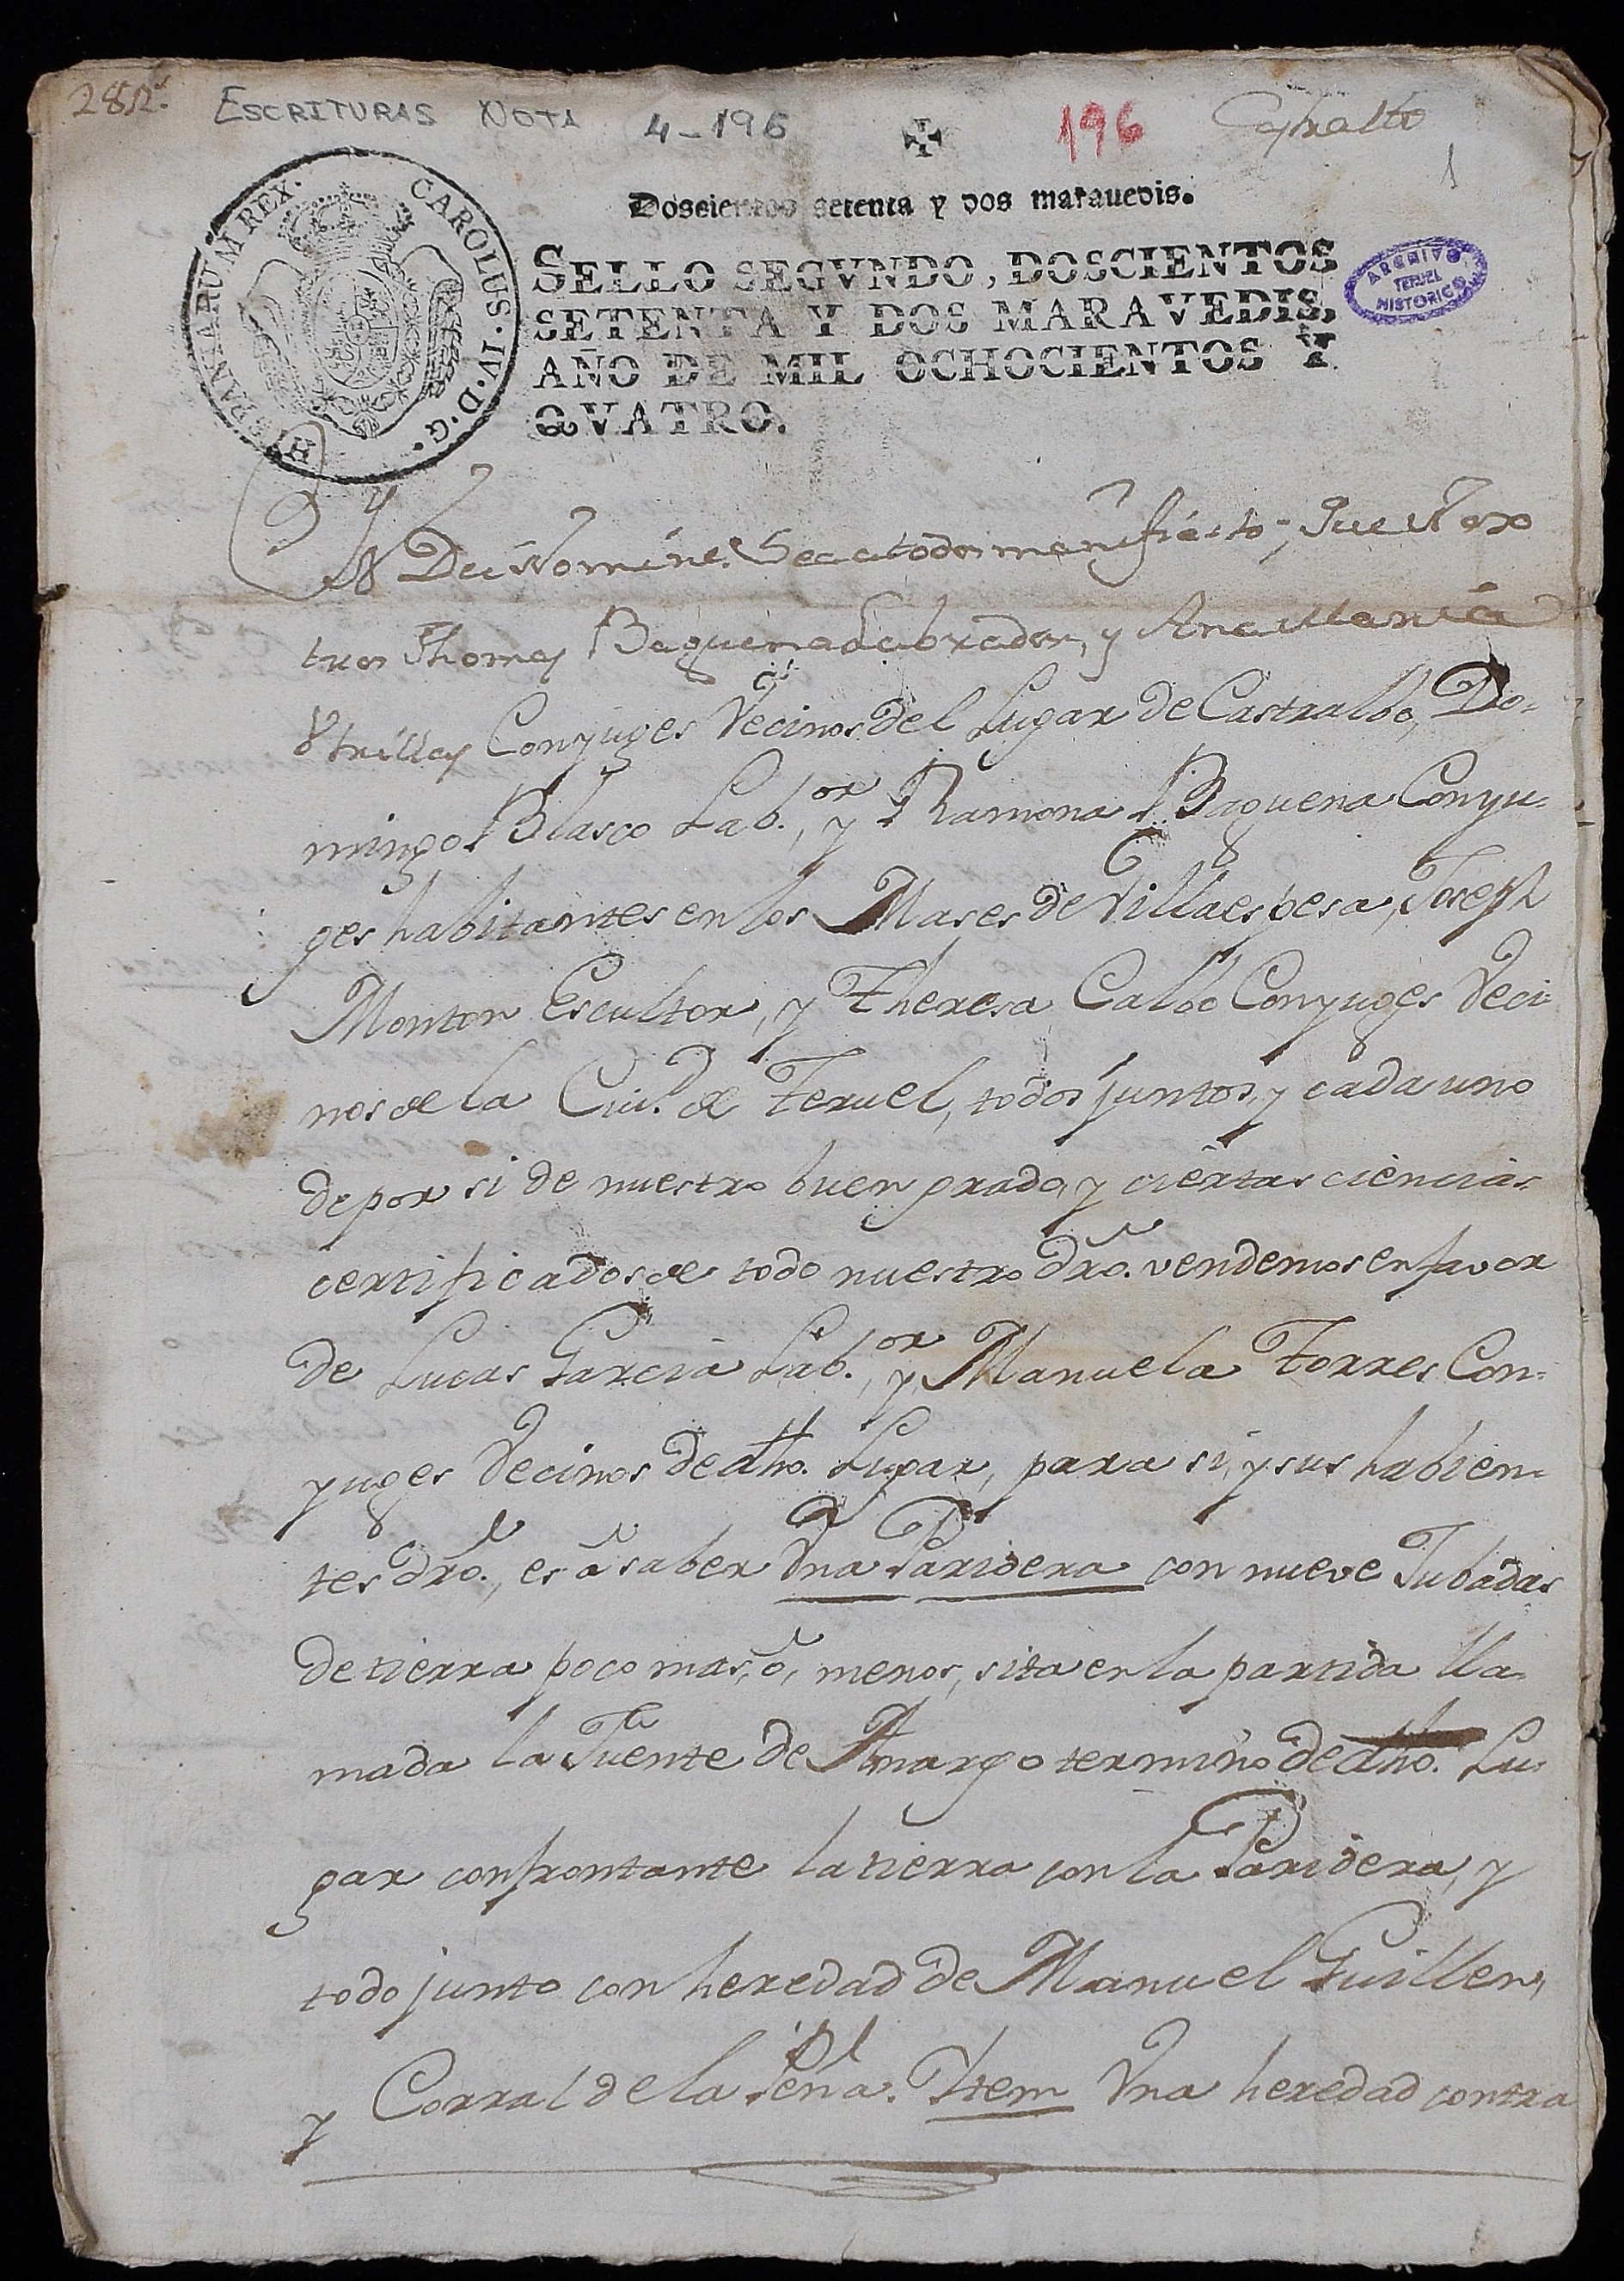 ESCRITURAS NOTA 4-196 196
1
Doscientos setenta y dos marauedis.
HISPANIARUM REX. CAROLUS·IV·D·G·
SELLO SEGVNDO, DOSCIENTOS
SETENTA Y DOS MARAVEDIS,
AÑO DE MIL OCHOCIENTOS Y
QVATRO.
ARCHIVO
TERUEL
HISTORICO
Dei Nomine. Sea a todos manifiesto, Que Noso
tros Thomas Baguena Labrador, y Ana Maria
Utrillas Conyuges Vecinos del Lugar de Castralbo, Do-
mingo Blasco Lab.or, y Ramona Baguena Conyu-
ges habitantes en los Mases de Villaespesa, Joseph
Monton Escultor, y Theresa Calbo Conyuges Veci-
nos de la Ciu.d de Teruel, todos juntos, y cada uno
de por si de nuestro buen grado, y ciertas ciencias
certificados de todo nuestro dro. vendemos en favor
de Lucas Garcia Lab.or, y Manuela Torres Con-
yuges Vecinos de dho. Lugar, para si, y sus habien-
tes dro., es â saber Vna Paridera con nueve Jubadas
de tierra poco mas, ô, menos, sita en la partida lla-
mada la Fuente de Amargo termino de dho. Lu-
gar confrontante la tierra con la Paridera, y
todo junto con heredad de Manuel Guillen,
y Corral de la Peña. Ittem Vna heredad contra